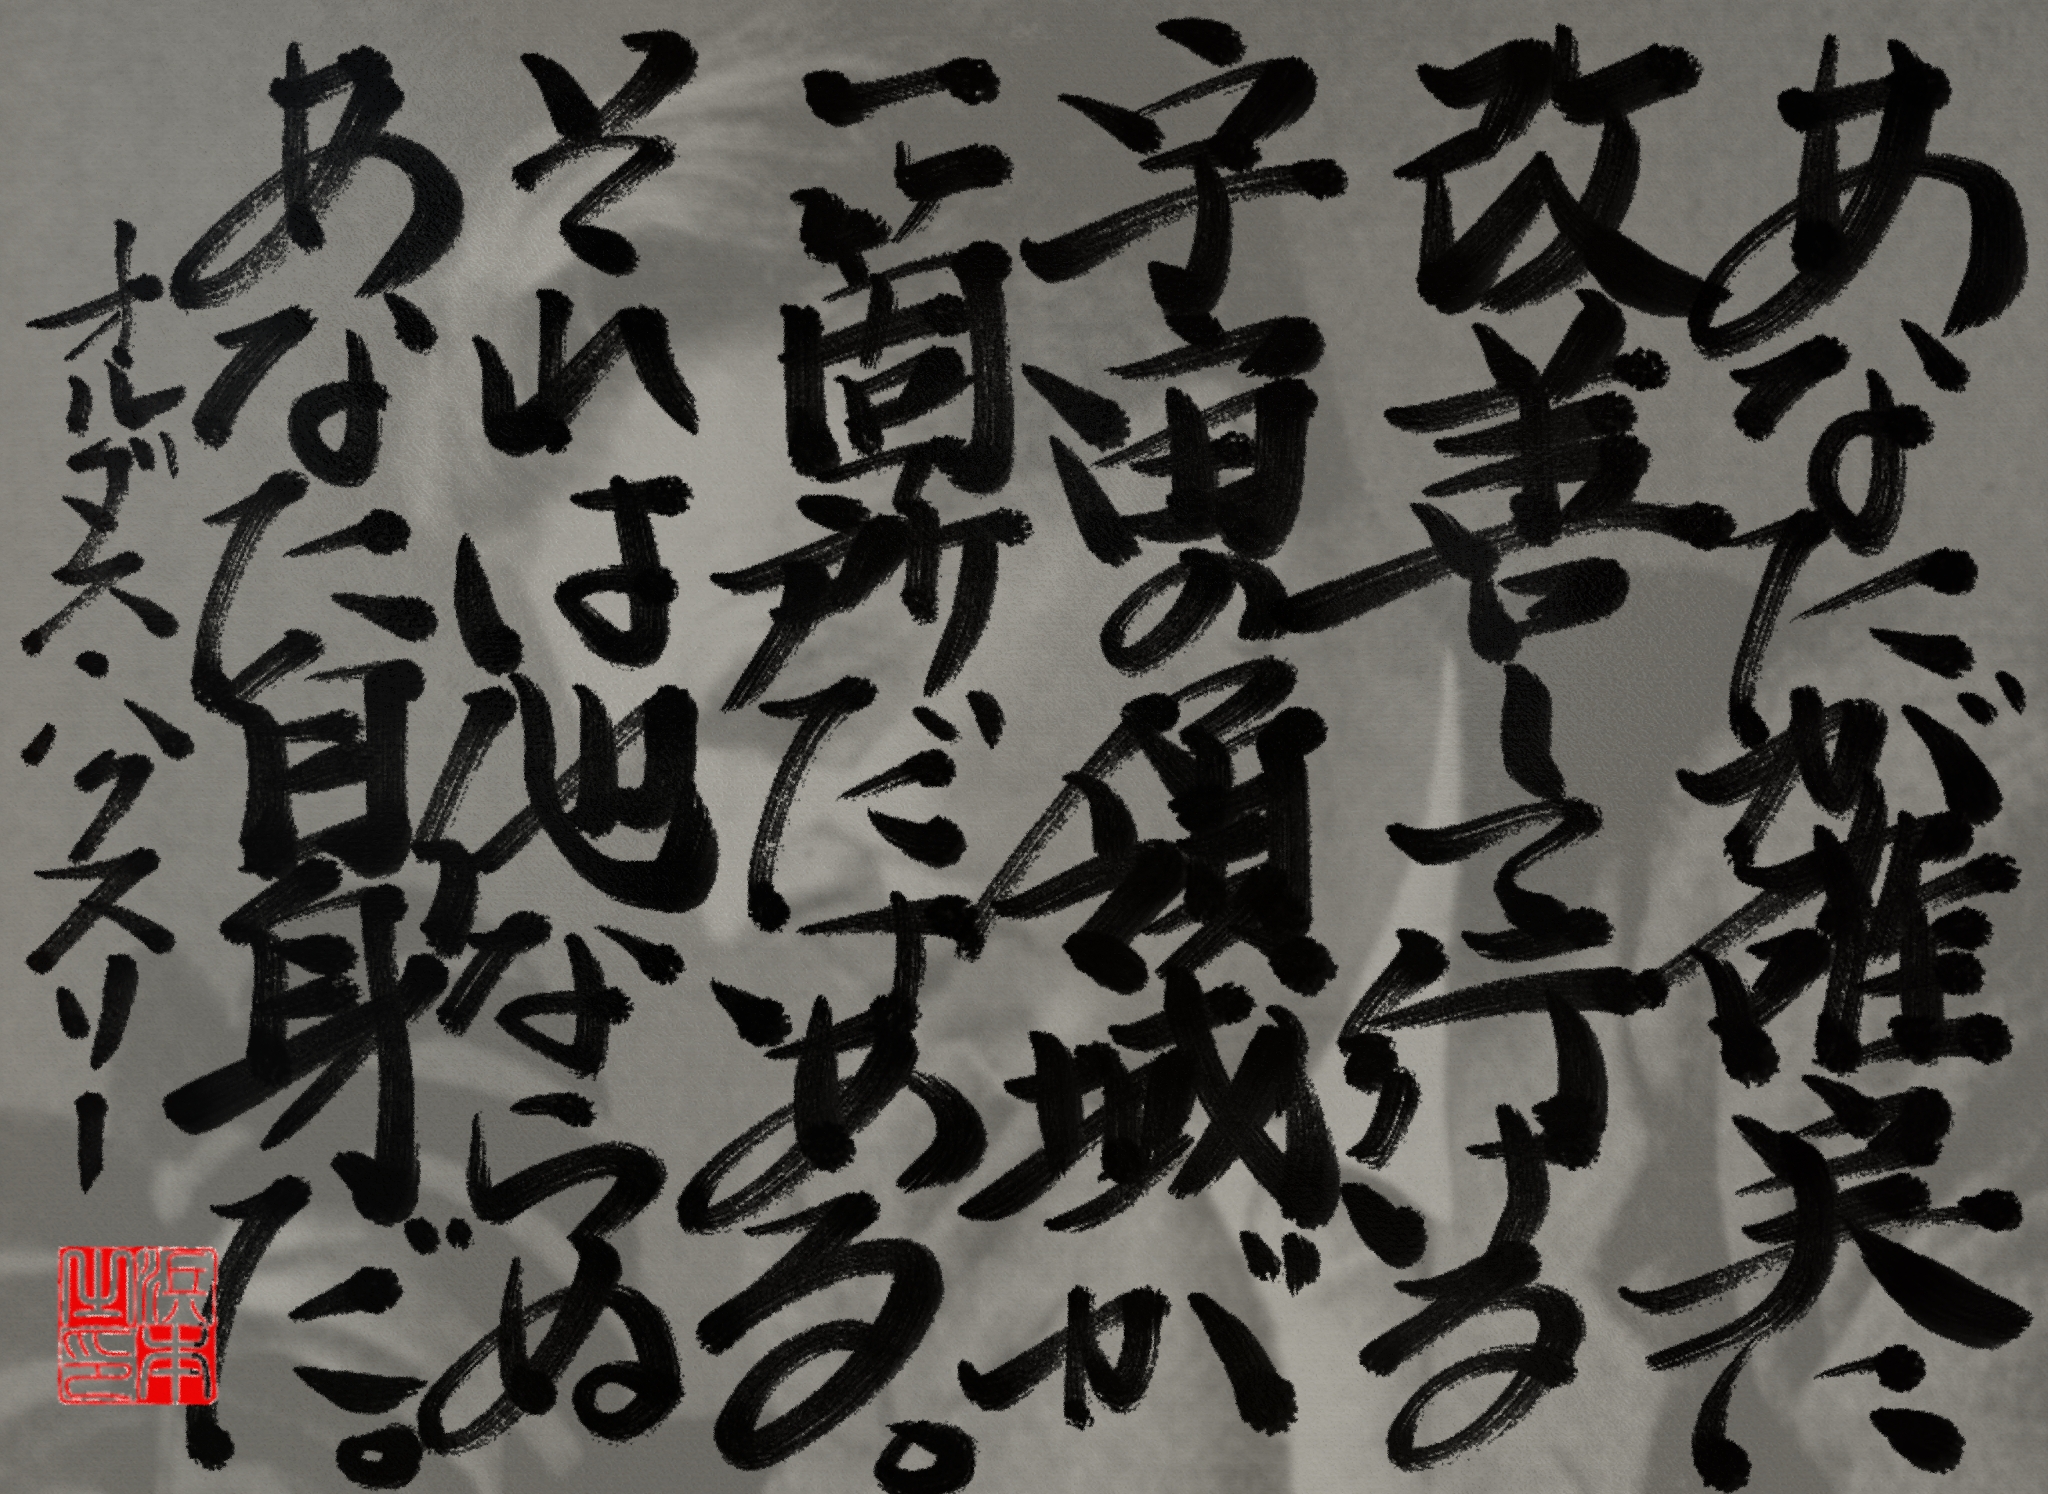 あなたが確実に
改善し言行する
宇宙の領域が
一箇所だけある。
それは他ならぬ
あなた自身だ。
オルダス・ハクスリー
浜本之印